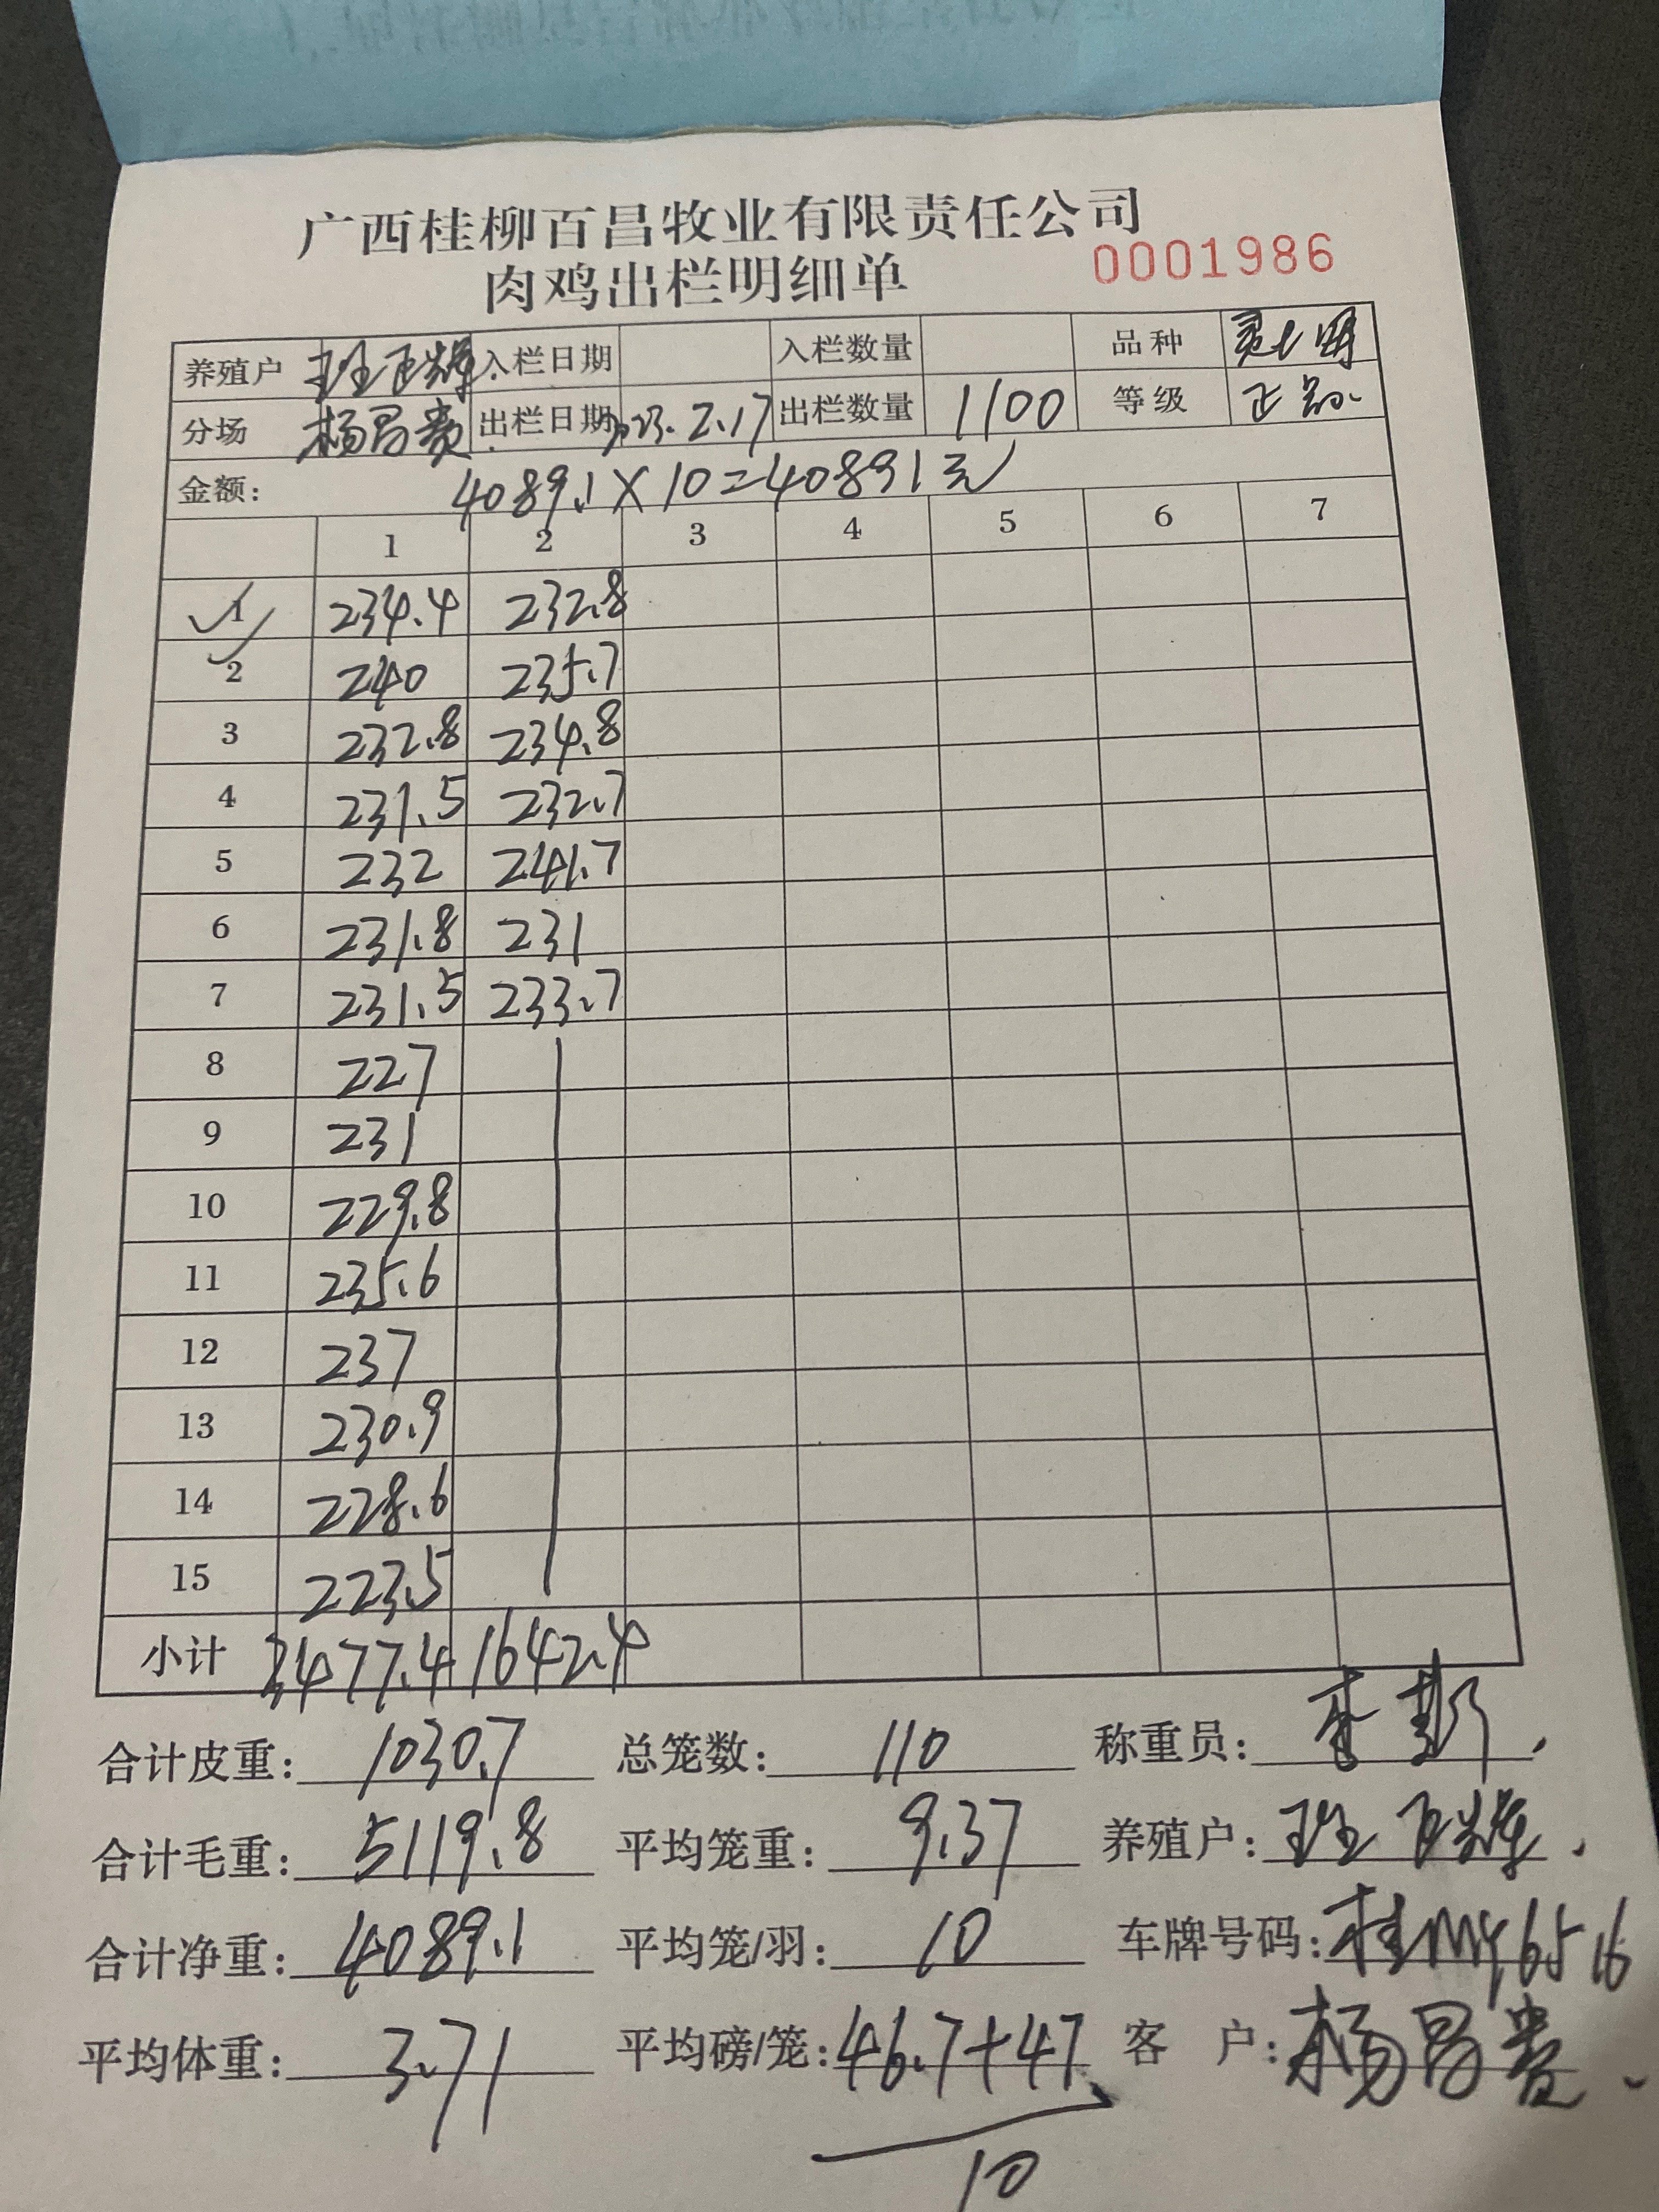 广西桂柳百昌牧业有限责任公司
肉鸡出栏明细单 0001986
养殖户 入栏日期 入栏数量 品种
分场 杨昌贵 出栏日期 2023.2.17 出栏数量 1100 等级
金额: 4089.1×10=40891元
1 2 3 4 5 6 7
1 234.4 232.8
2 240 235.7
3 232.8 234.8
4 231.5 232.7
5 232 241.7
6 231.8 231
7 231.5 233.7
8 227
9 231
10 229.8
11 235.6
12 237
13 230.9
14 228.6
15 223.5
小计 3477.4 1642.4
合计皮重: 1030.7 总笼数: 110 称重员: 李
合计毛重: 5119.8 平均笼重: 9.37 养殖户:
合计净重: 4089.1 平均笼/羽: 10 车牌号码: 桂
平均体重: 3.71 平均磅/笼: 46.7+47 客户: 杨昌贵
10